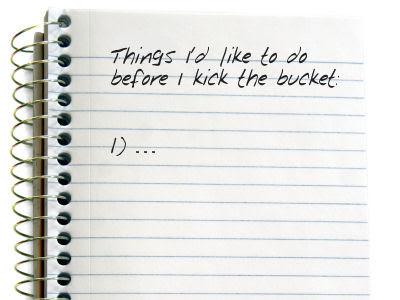 Things I'd like to do
before I kick the bucket:
1) ...